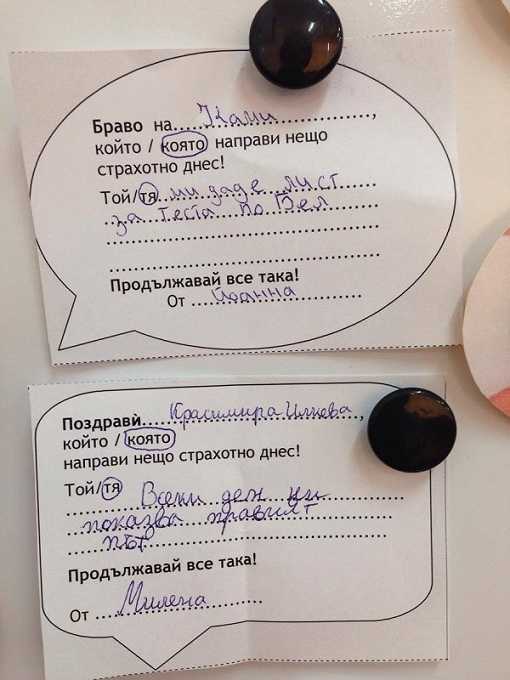 Браво на....Ками....,
който / която направи нещо
страхотно днес!
Той/тя ми даде лист
за теста по Бел
Продължавай все така!
От Йоанна
Поздрави Красимира Илиева,
който / която
направи нещо страхотно днес!
Той/тя Всеки ден ни
показва правият
път
Продължавай все така!
От Милена